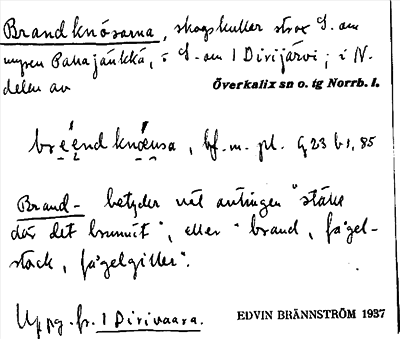 Brandknösarna, skogskullar strax S. om
myren Pahajänkkä, i S. om 1 Dirijärvi; i N.
delen av Överkalix sn o. tg Norrb. l.
bre̤e̤ndknö̤ṳsa, bf. m. pl. G 23 b 1, 85
Brand- betyder väl antingen "ställe
där det brunnit", eller "brand, fågel-
stock, fågelgiller".
Uppg. fr. 1 Dirivaara. EDVIN BRÄNNSTRÖM 1937